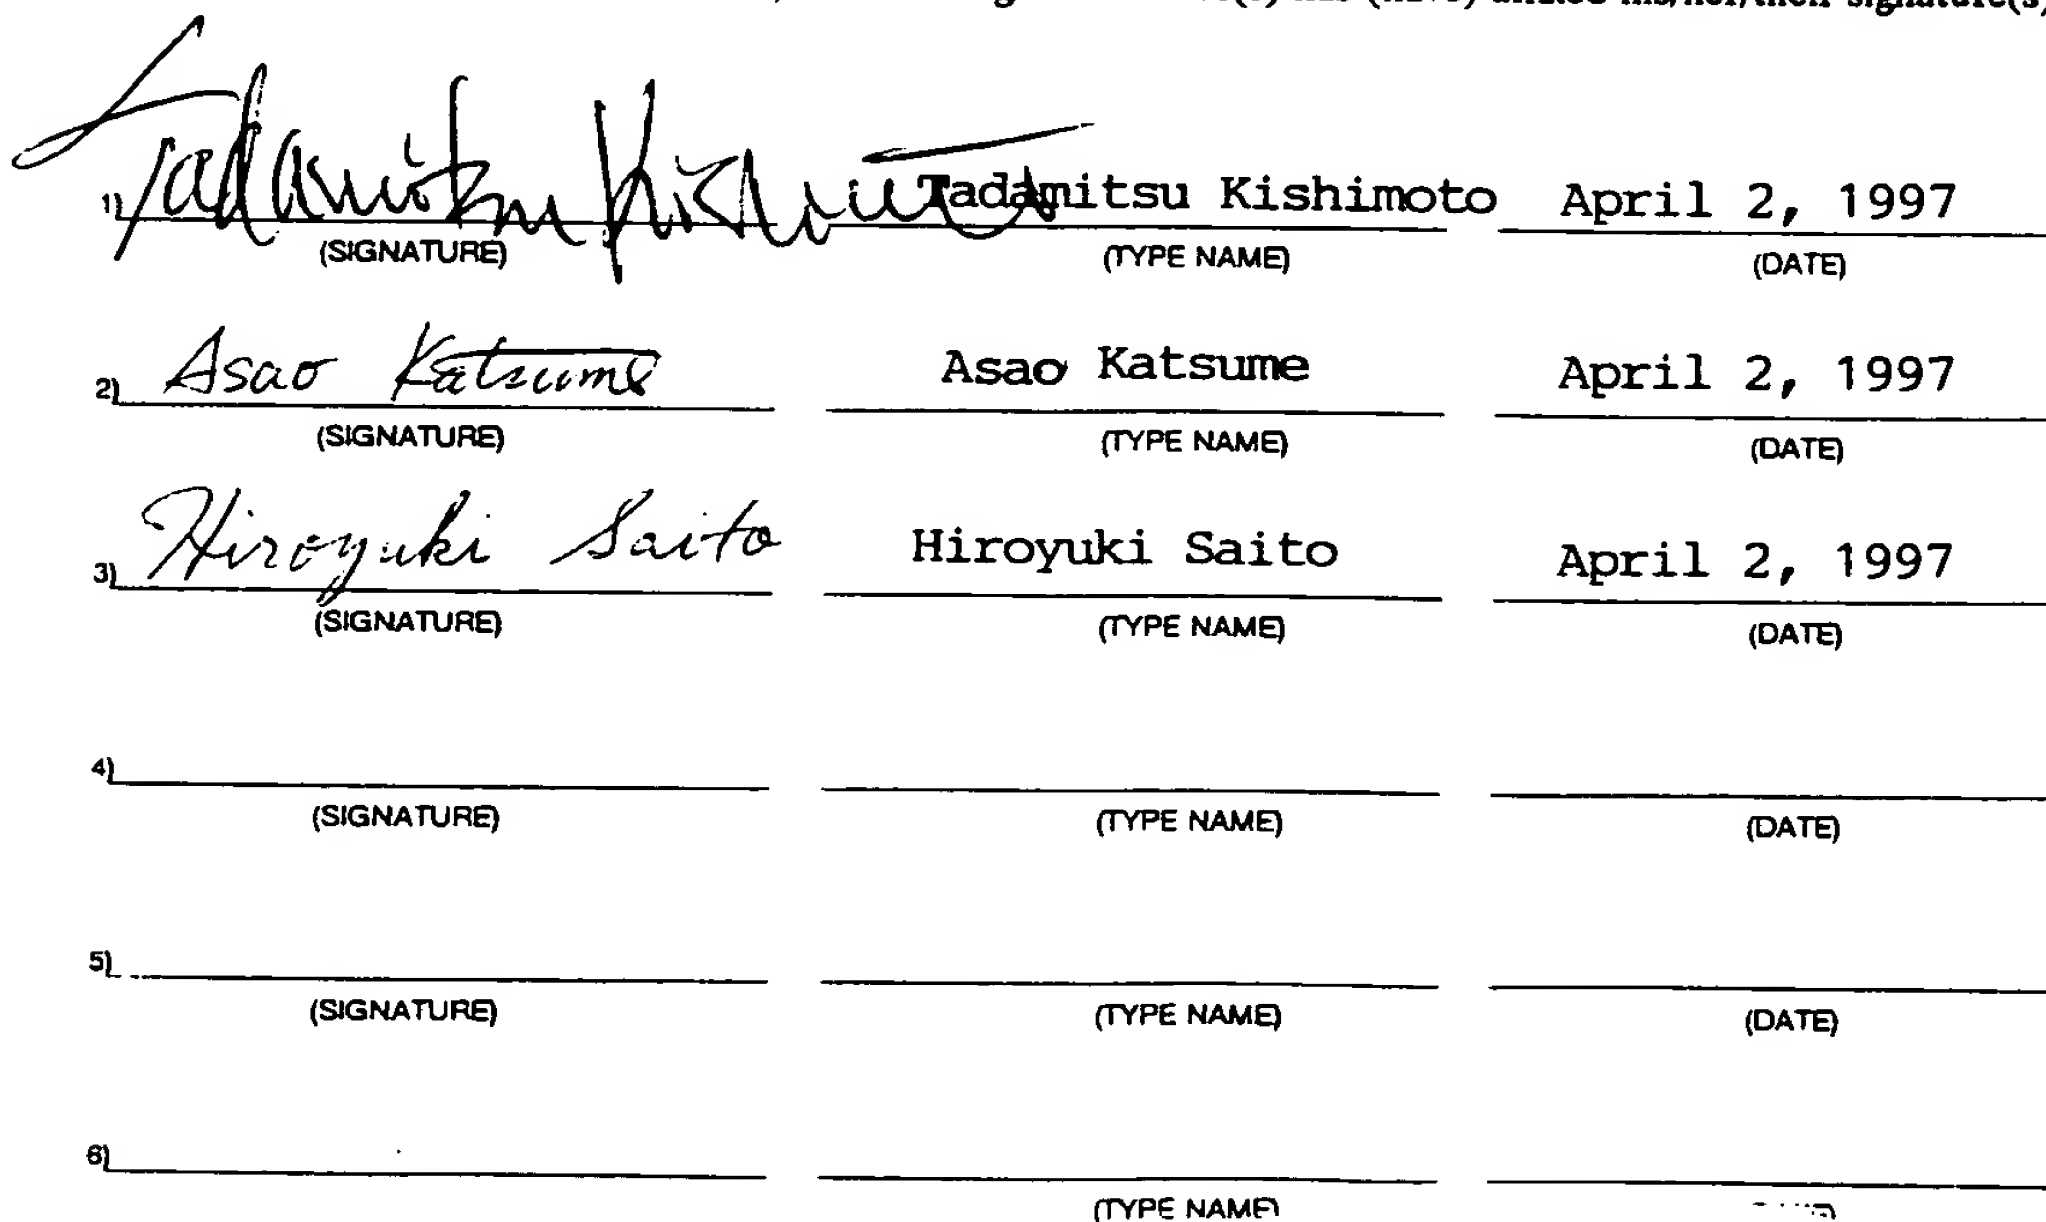 signature(s)
1) Tadamitsu Kishimoto Tadamitsu Kishimoto April 2, 1997
(SIGNATURE) (TYPE NAME) (DATE)
2) Asao Katsume Asao Katsume April 2, 1997
(SIGNATURE) (TYPE NAME) (DATE)
3) Hiroyuki Saito Hiroyuki Saito April 2, 1997
(SIGNATURE) (TYPE NAME) (DATE)
4)
(SIGNATURE) (TYPE NAME) (DATE)
5)
(SIGNATURE) (TYPE NAME) (DATE)
6)
(TYPE NAME)